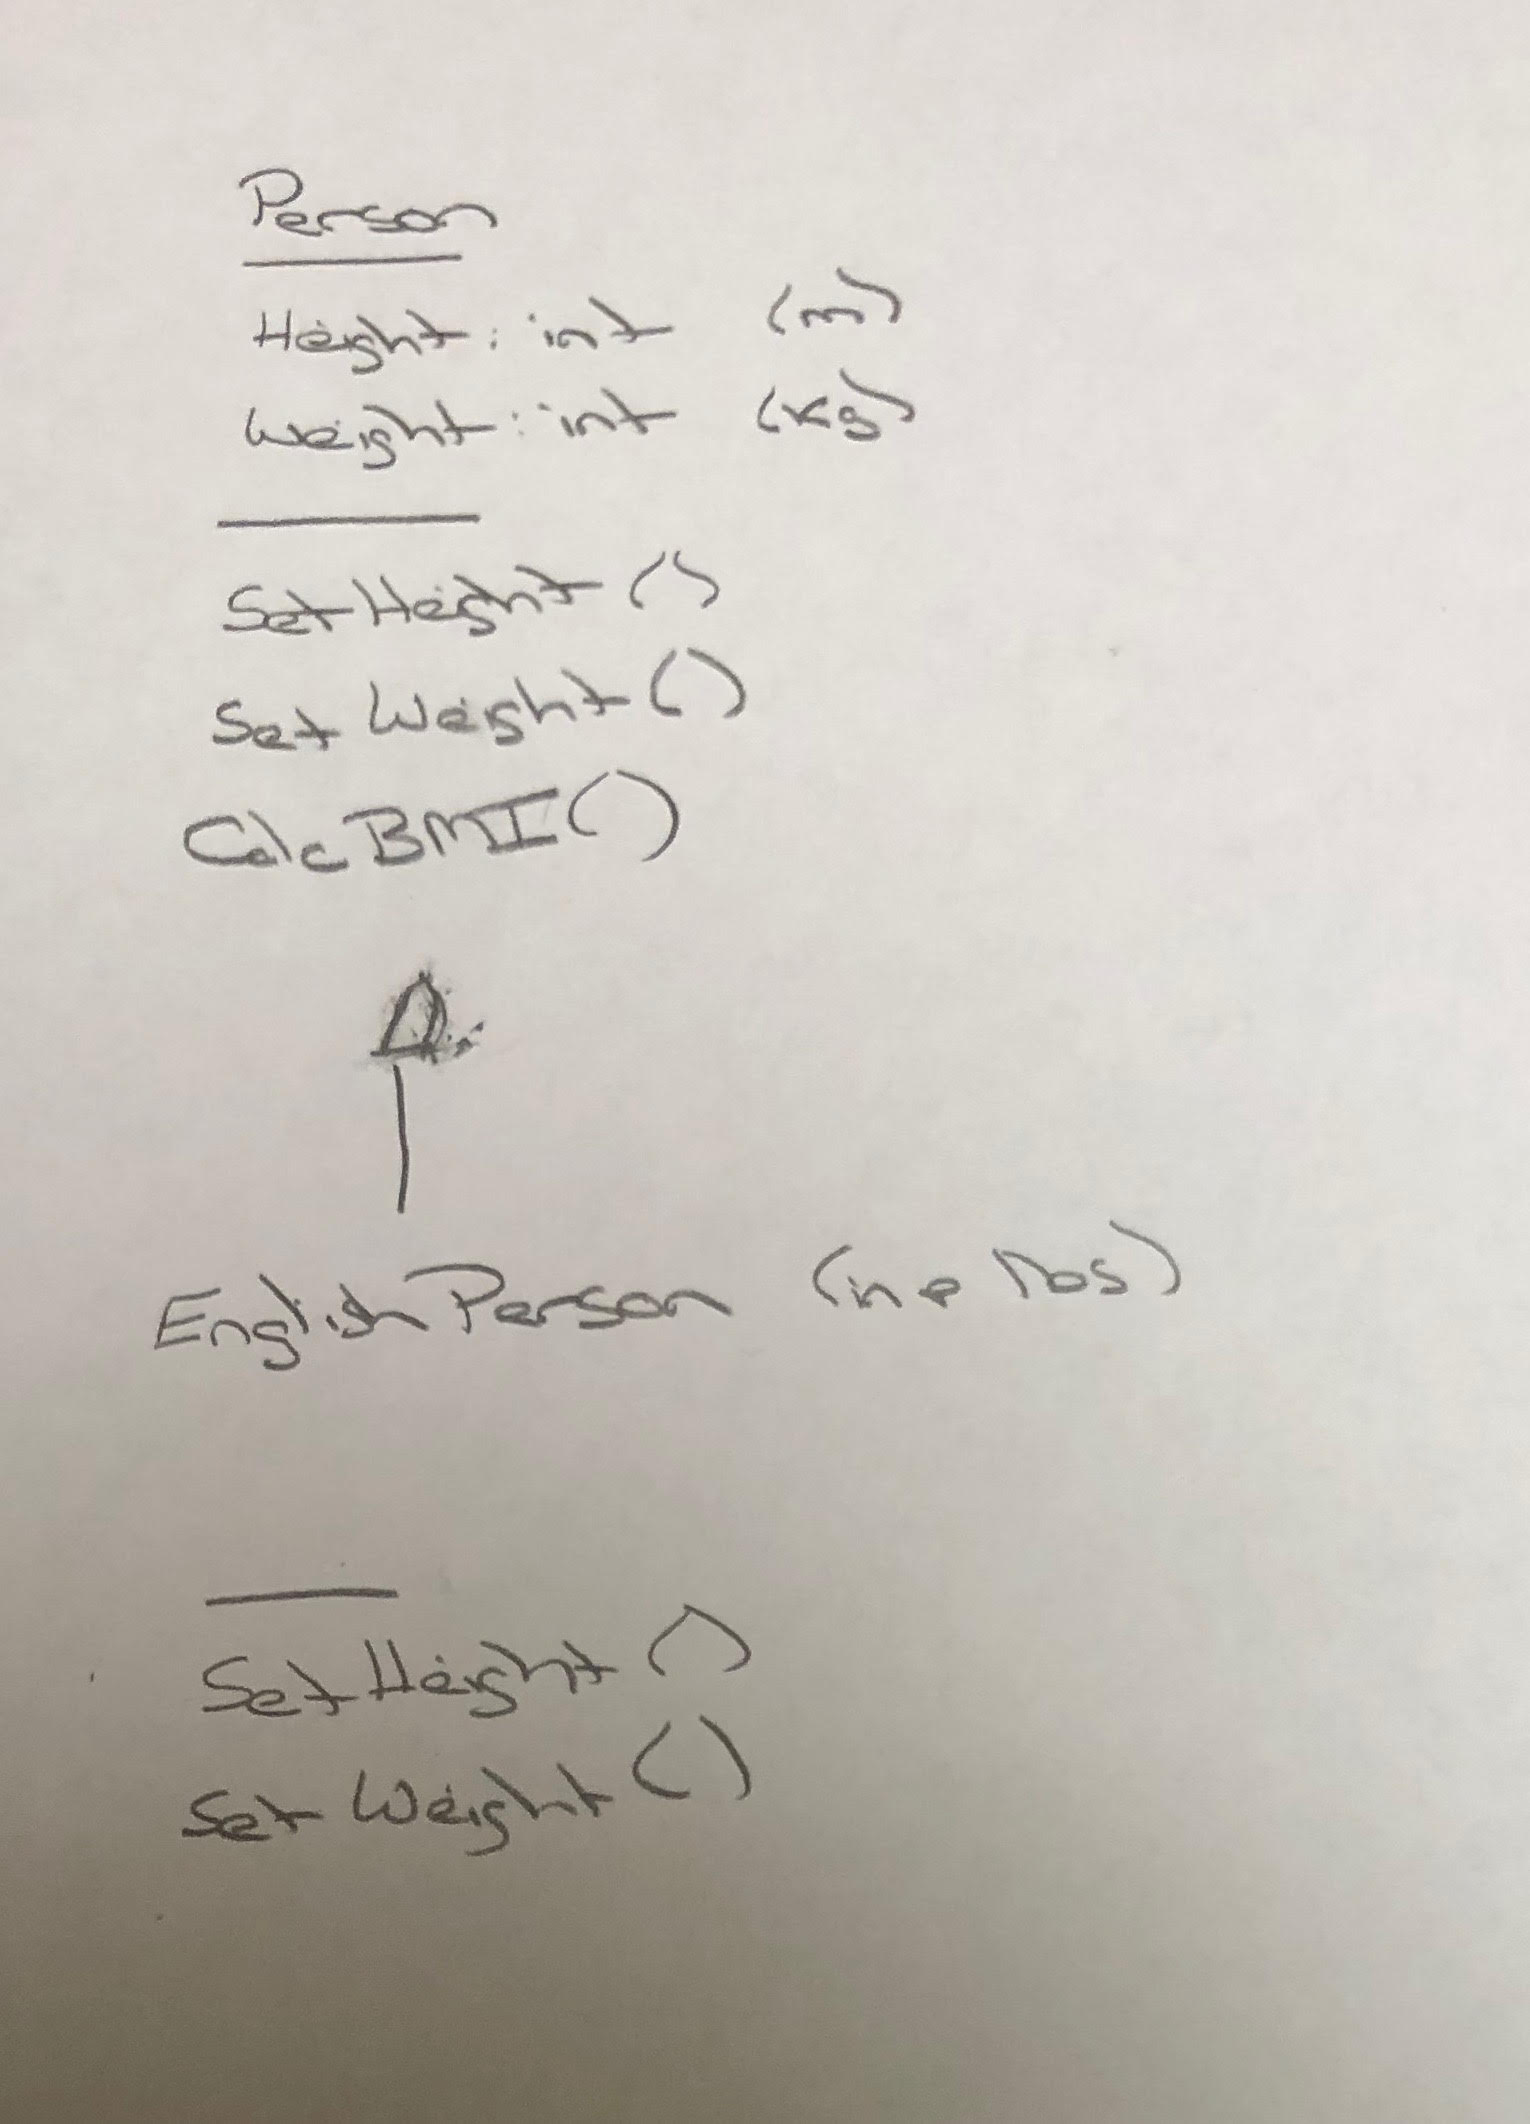 Person
Height: int (m)
Weight: int (kg)
SetHeight()
Set Weight()
CalcBMI()
EnglishPerson (in lbs)
SetHeight()
Set Weight()